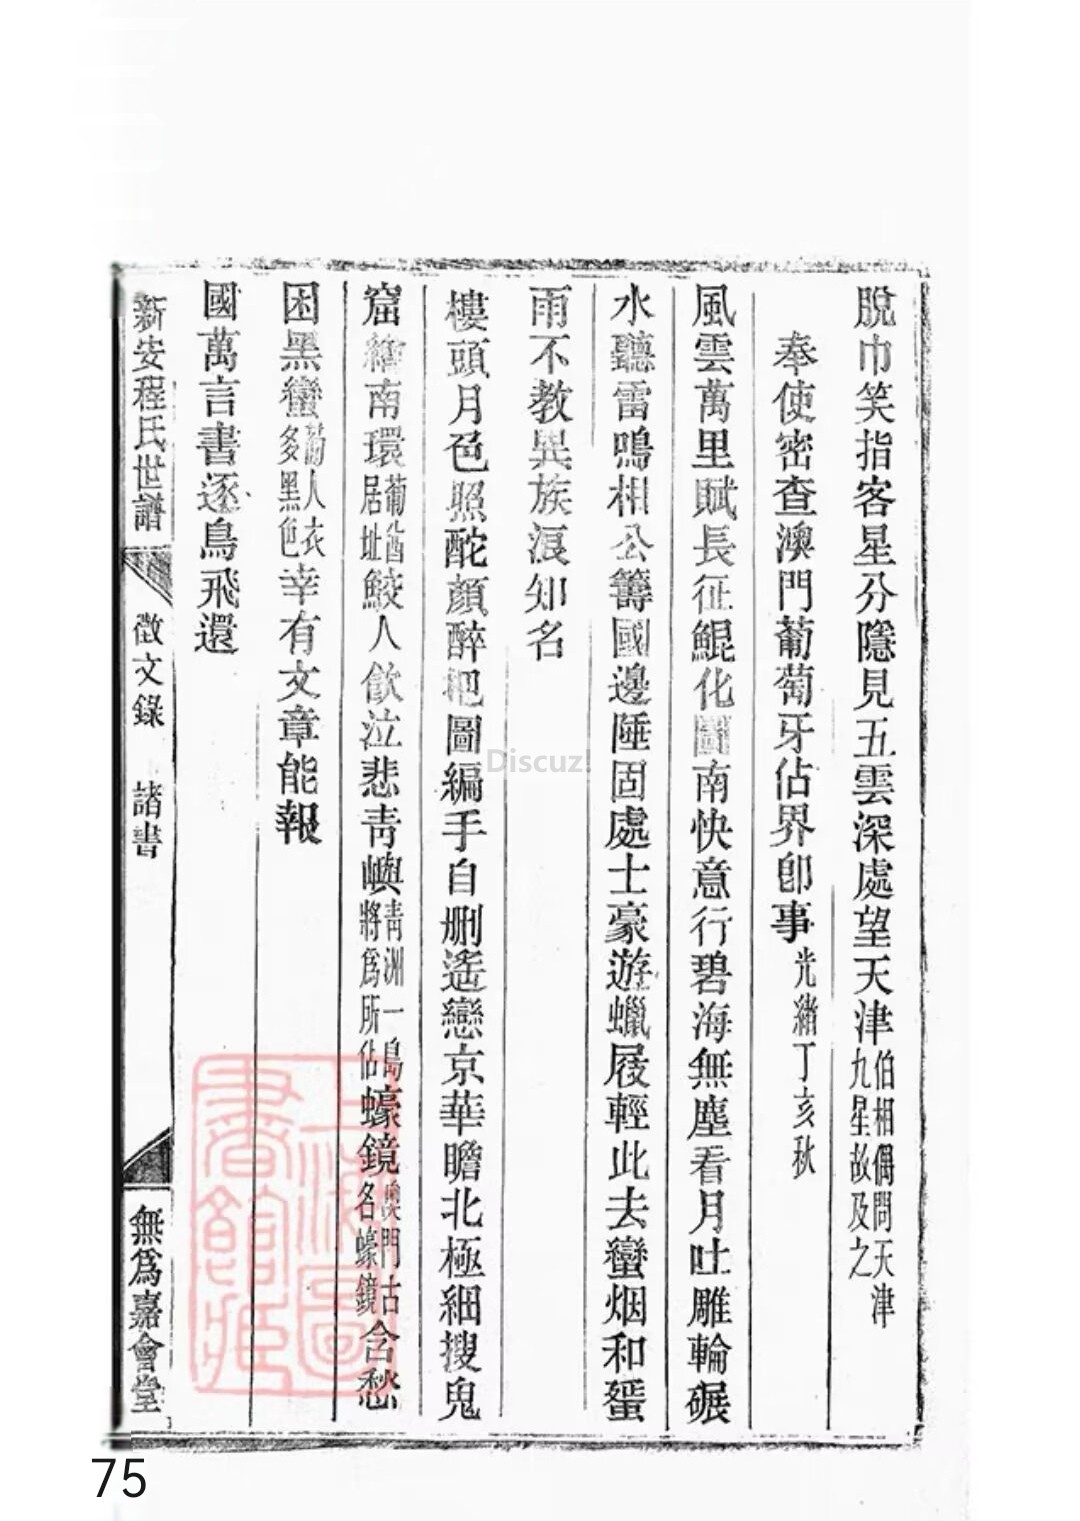 脫巾笑指客星分隱見五雲深處望天津伯相偶問天津九星故及之
奉使密查澳門葡萄牙佔界卽事光緒丁亥秋
風雲萬里賦長征鯤化圖南快意行碧海無塵看月吐雕輪碾
水聽雷鳴相公籌國邊陲固處士豪遊蠟屐輕此去蠻烟和蜑
雨不教異族浪知名
樓頭月色照酡顏醉把圖編手自刪遙戀京華瞻北極細搜鬼
窟繪南環葡酋居址鮫人飲泣悲靑嶼靑洲一島將爲所佔蠔鏡澳門古名蠔鏡含愁
困黑蠻葡人衣多黑色幸有文章能報
國萬言書逐鳥飛還
新安程氏世譜 徵文錄 諸書 無爲嘉會堂
上海圖書館藏
Discuz!
75